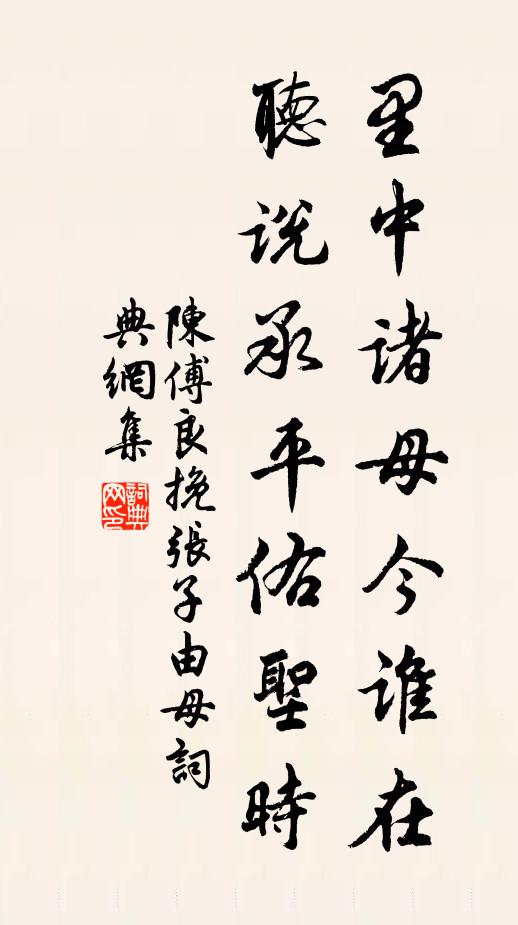 里中諸母今誰在
聽說承平佑聖時
陳傅良挽張子由母詞
典網集
詞典
网印